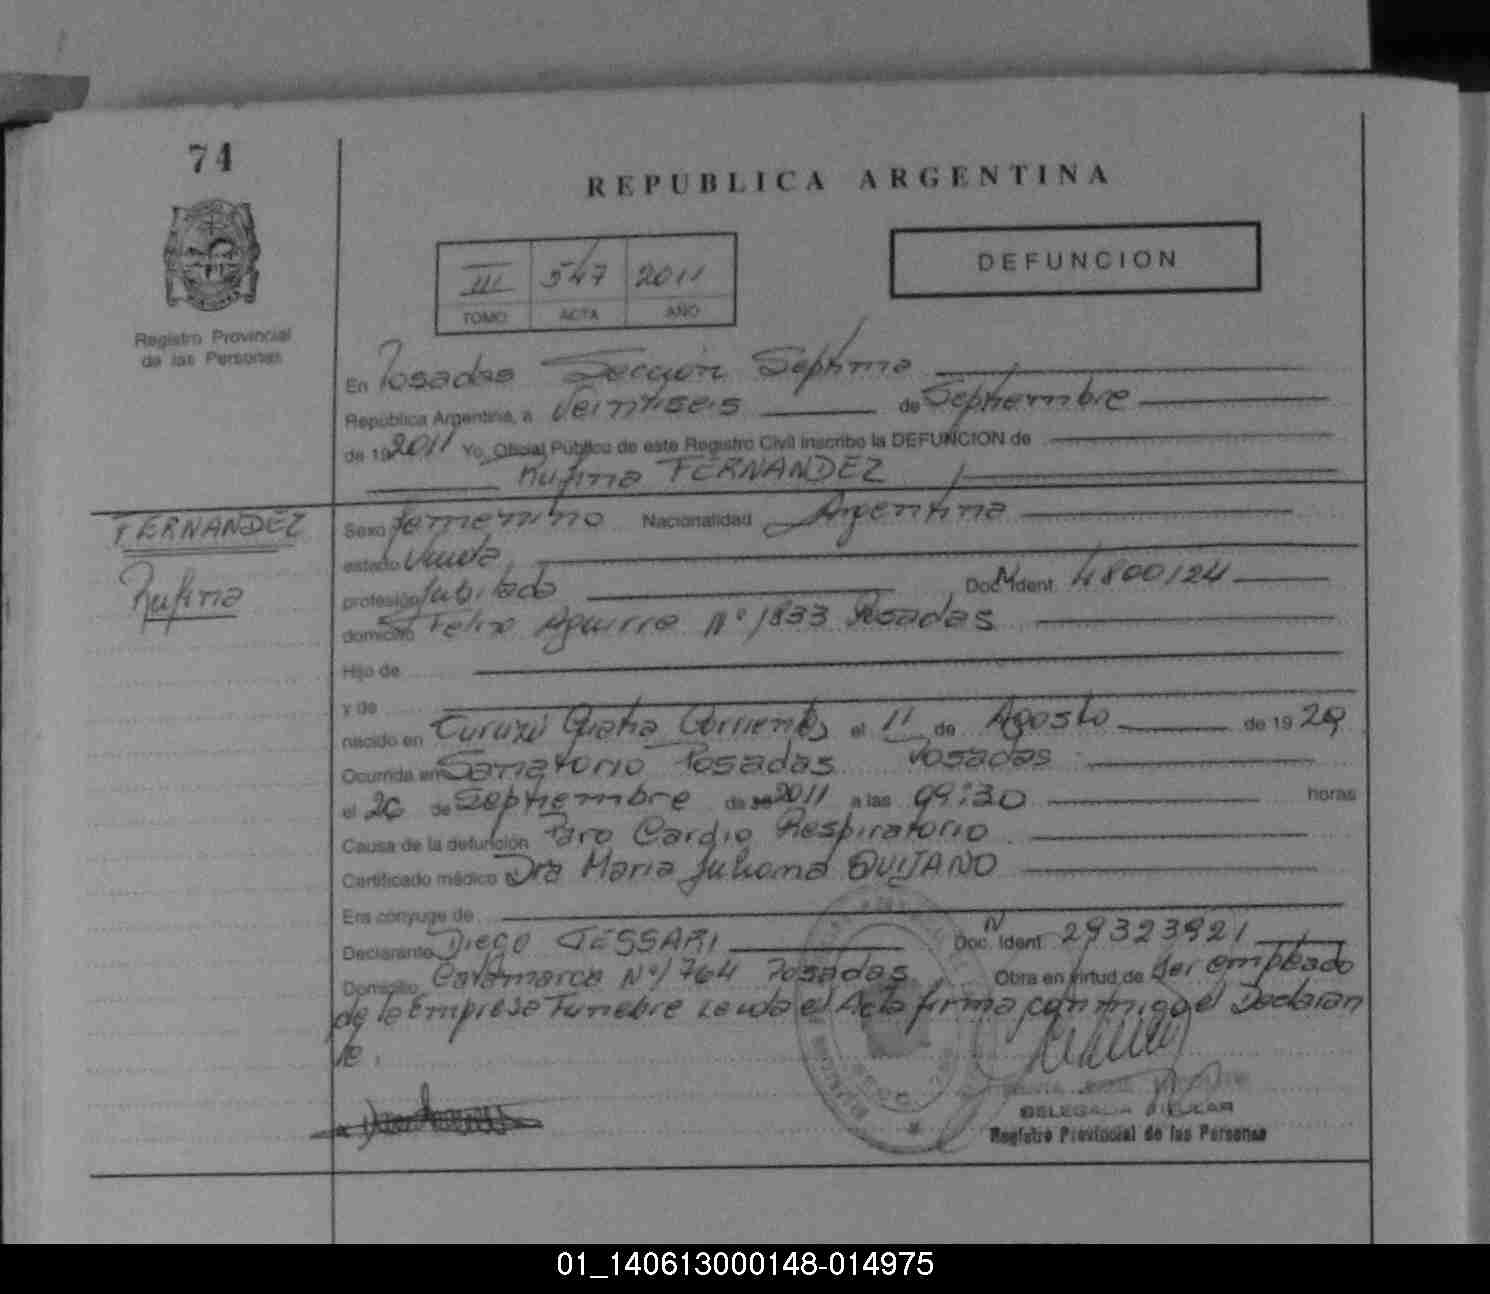 74
REPUBLICA ARGENTINA
Registro Provincial
de las Personas
III 547 2011
TOMO ACTA AÑO
DEFUNCION
En Posadas Sección Septima
República Argentina, a Veintiseis de Septiembre
de 19 2011 Yo, Oficial Público de este Registro Civil inscribo la DEFUNCION de
Rufina FERNANDEZ
FERNANDEZ
Rufina
Sexo femenino Nacionalidad Argentina
estado Viuda
profesión Jubilada Doc. N Ident. 4800124
domicilio Felix Aguirre Nº 1833 Posadas
Hijo de
y de
nacido en Curuzú Quatia Corrientes el 11 de Agosto de 19 29
Ocurrida en Sanatorio Posadas Posadas
el 26 de Septiembre de 19 2011 a las 09:30 horas
Causa de la defunción Paro Cardio Respiratorio
Certificado médico Dra Maria Juliana QUIJANO
Era cónyuge de
Declarante Diego TESSARI Doc. N Ident. 29323921
Domicilio Catamarca Nº 1764 Posadas Obra en virtud de ser empleado
de la Empresa Funebre Leida el Acta firma conmigo el Declaran
te.
DELEGADA TITULAR
Registro Provincial de las Personas
01_140613000148-014975